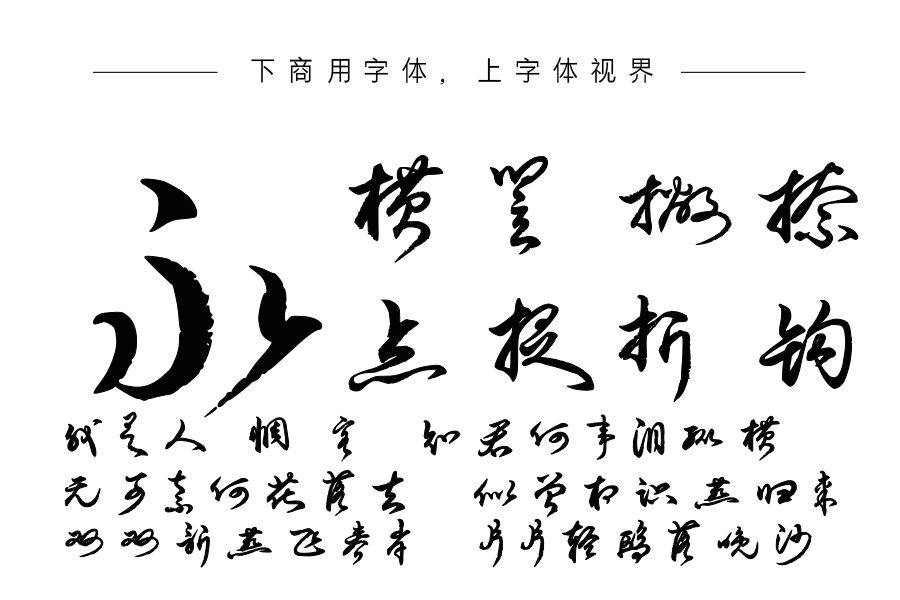 下商用字体, 上字体视界
永
横 竖 撇 捺
点 提 折 钩
我是人 惆 客 知君何事泪纵横
无可奈何花落去 似曾相识燕归来
双双新燕飞春岸 片片轻鸥落晚沙